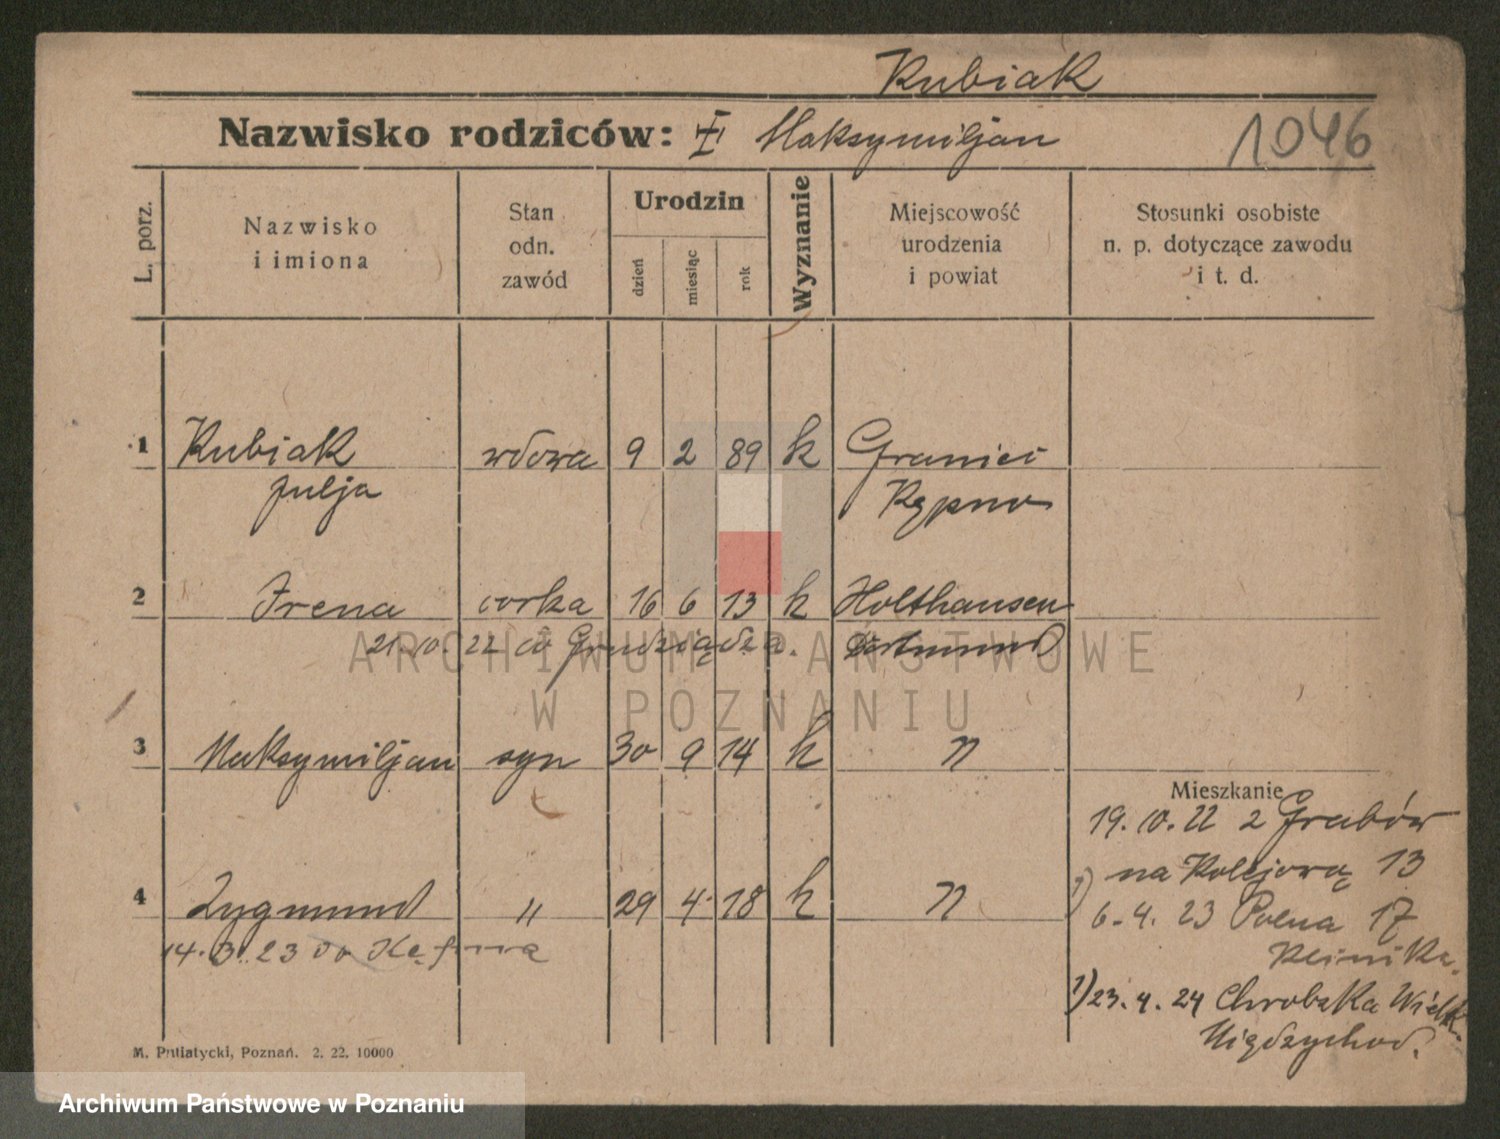 Kubiak
Nazwisko rodziców: Maksymiljan 1046
L. porz.
Nazwisko
i imiona
Stan
odn.
zawód
Urodzin
dzień
miesiąc
rok
Wyznanie
Miejscowość
urodzenia
i powiat
Stosunki osobiste
n. p. dotyczące zawodu
i t. d.
1 Kubiak wdowa 9 2 89 k
Julja Kępno
2 Irena corka 16 6 13 k Holthausen
21.10.22 do Grudziądza. Dortmund
3 Maksymiljan syn 30 9 14 k "
Mieszkanie
19.10.22 z Grabów
na Kolejową 13
4 Zygmund " 29 4 18 k "
6.4.23 Polna 17
14.3.23 do Kępna
Klinika.
1) 23.4.24 Chrobzka Wielk.
Międzychod.
M. Putiatycki, Poznań. 2. 22. 10000
ARCHIWUM PAŃSTWOWE
W POZNANIU
Archiwum Państwowe w Poznaniu